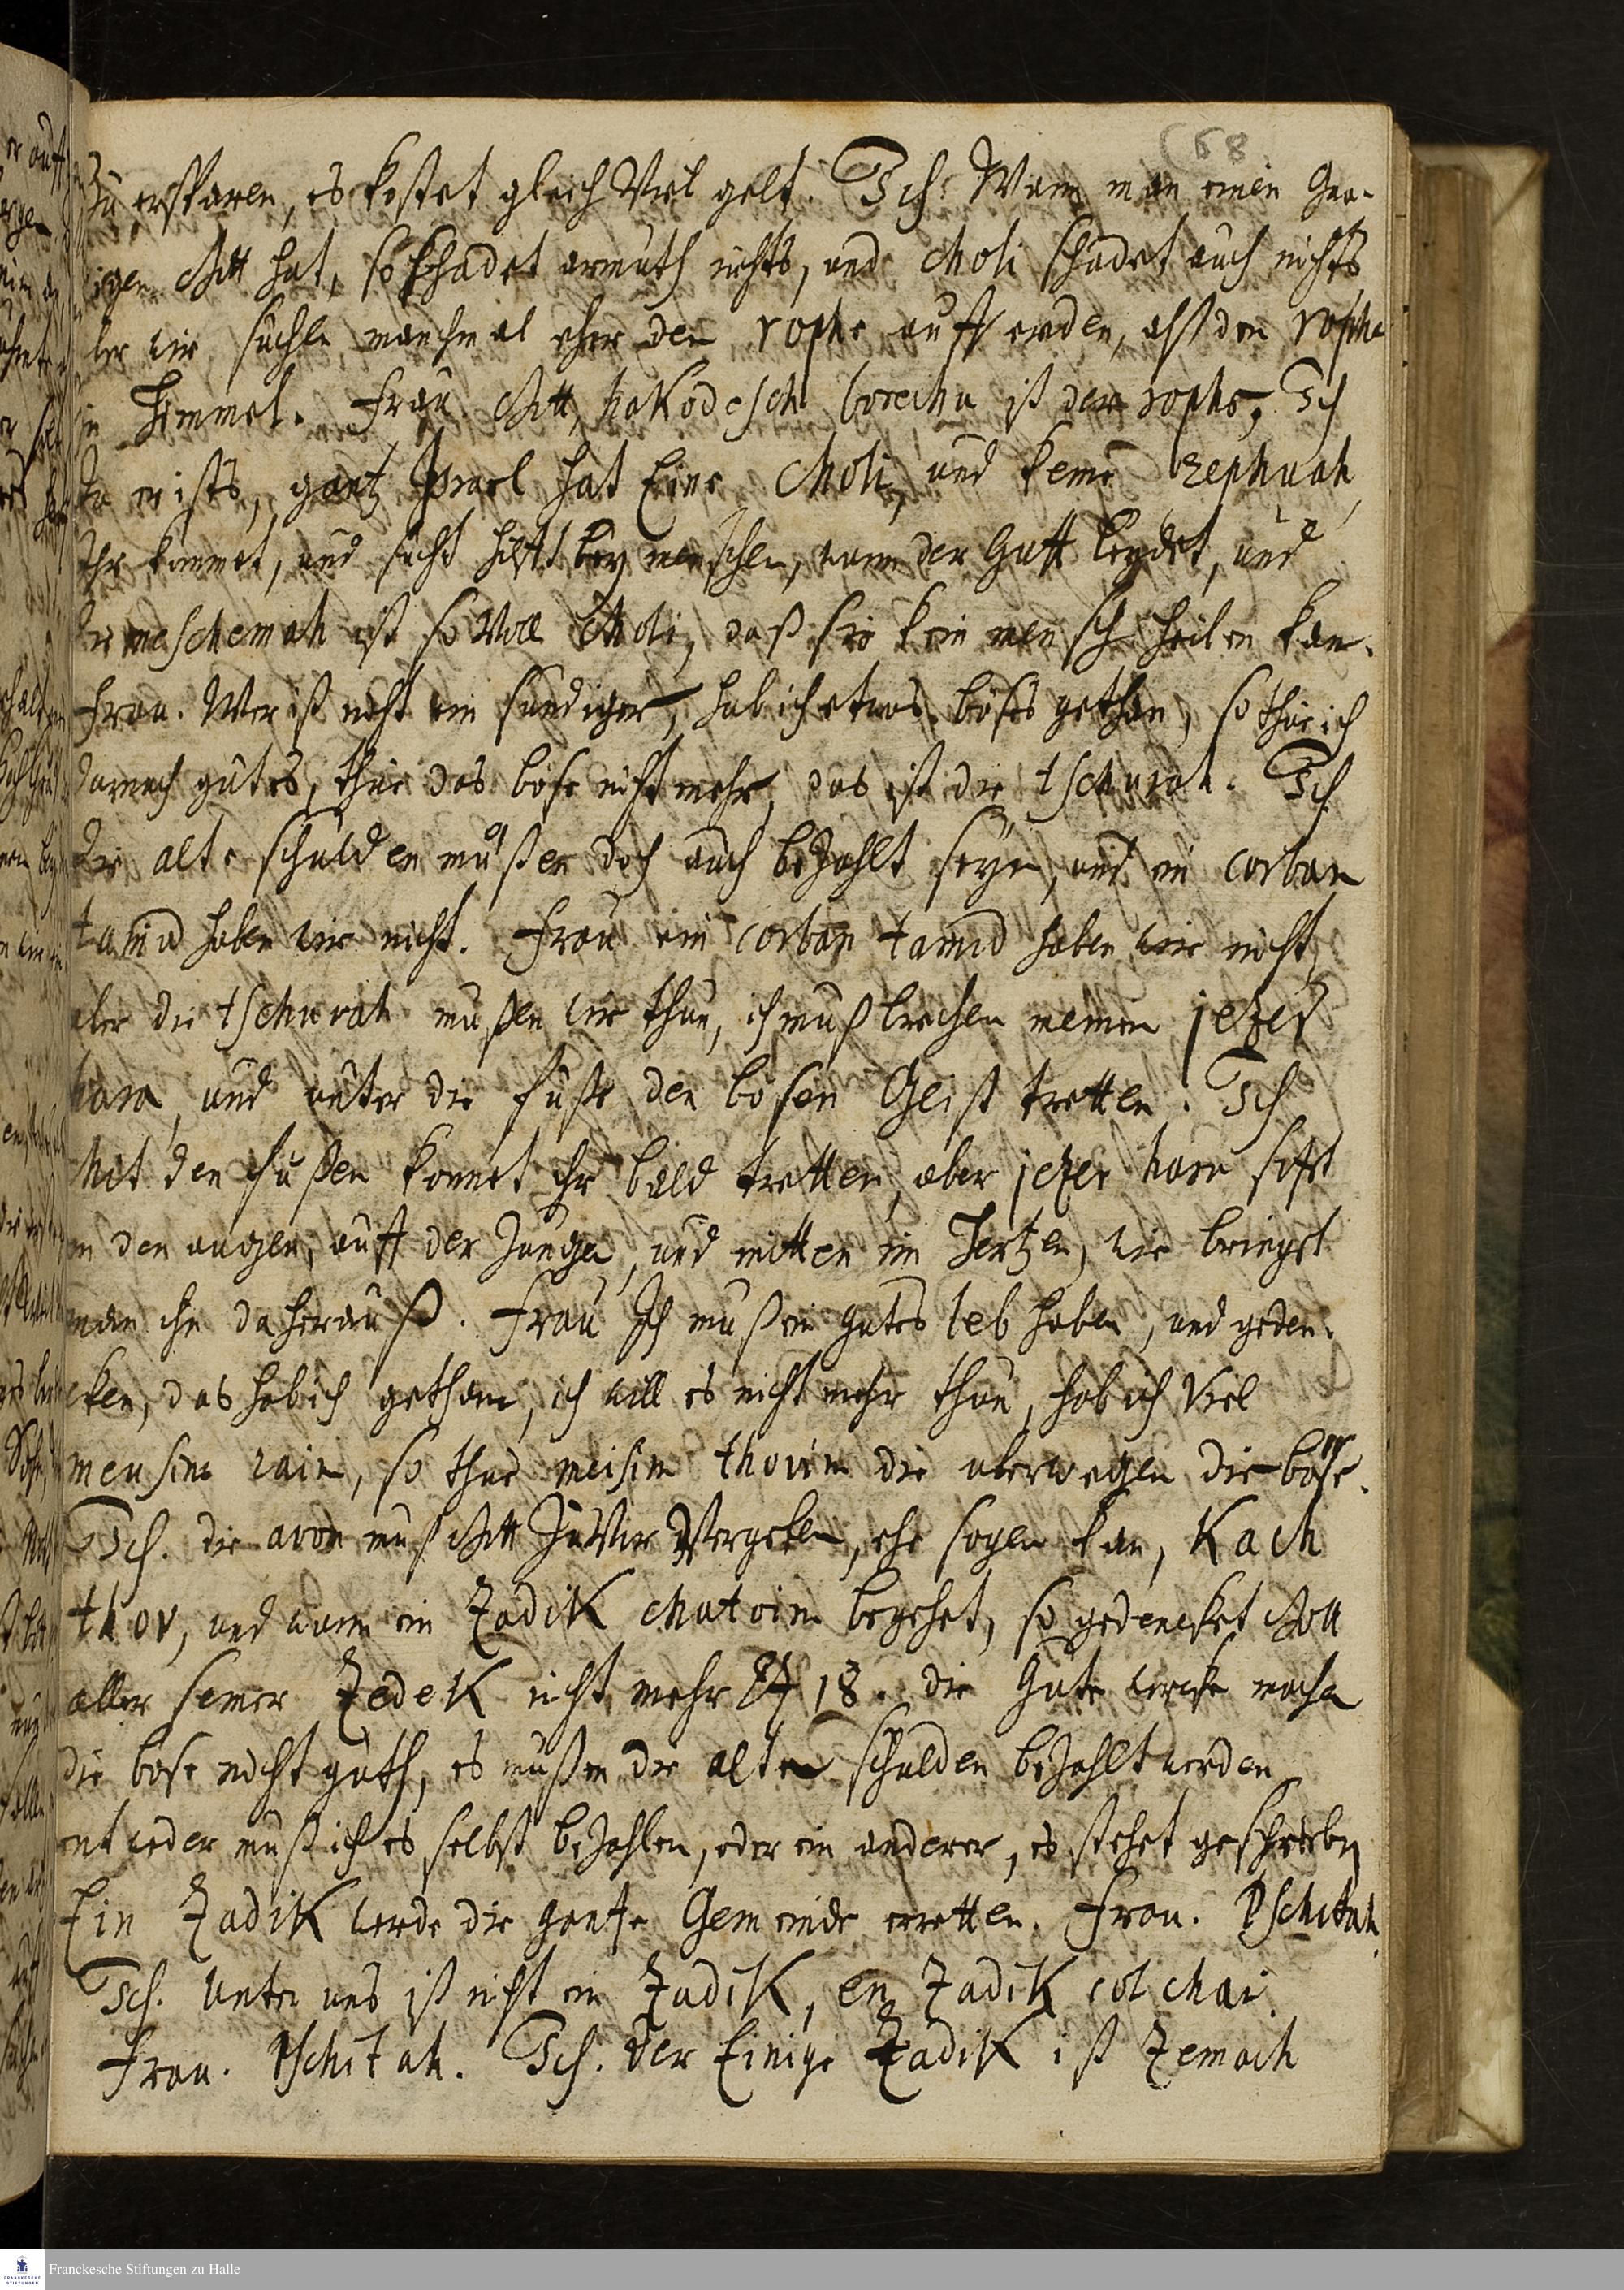 68
Zu ersparen, es kostet gleich Viel gelt. Tsch: Wann man einen Gnä-
igen Gott hat, so schadet armuth nichts, und Choli schadet auch nichts,
ber wir suchen manchmal eher den rophe auff erden, alß den rophe
in Himmel. Frau. Gott hakodesch borechu ist der rophe, Tsch
Ja er ists, gantz Israel hat Eine Choli, und keine rephuah,
Ihr kommet, und sucht hilff bey menschen, wann der Guff leydet, und
die neschemah ist so Voll Choli, daß sie kein mensch heilen kan.
Frau. Wer ist nicht ein sündiger, hab ich etwas böses gethan, so thue ich
darnach gutes, thue das böse nicht mehr, das ist die tschuvah. Tsch
die alte schulden müßen doch auch bezahlt seyn, und ein corban
tamid haben wir nicht. Frau ein corban tamid haben wir nicht,
aber die tschuvah müßen wir thun, ich muß brechen meinen jezer
hara, und unter die füße den bösen Geist tretten. Tsch
Mit den füßen konnet ihr bald tretten, aber jezer hara sitzt
in den augen, auff der Zungen, und mitten im Hertzen, wie bringt
man ihn da herauß. Frau Ich muß ein gutes leb haben, und geden-
cken, das hab ich gethan, ich will es nicht mehr thun, hab ich Viel
mensim rain, so thue meisim thovim die uberwegen die böse.
Tsch. die avon muß Gott Zuvor Vergeben, ehe sagen kan, Kach
thov, und wann ein Zadik chatoim begehet, so gedencket Gott
aller seiner Zedek nicht mehr Ez 18. die Gute wercke machen
die böse nicht guth, es müßen die alten schulden bezahlt werden
entweder muß ich es selbst bezahlen, oder ein anderer, es stehet geschrieben
Ein Zadik werde die gantze Gemeinde erretten. Frau. Pschitah
Tsch. Unter uns ist nicht ein Zadik, en Zadik col chai.
Frau. Pschitah. Tsch. der Einige Zadik ist Zemach
Franckesche Stiftungen zu Halle